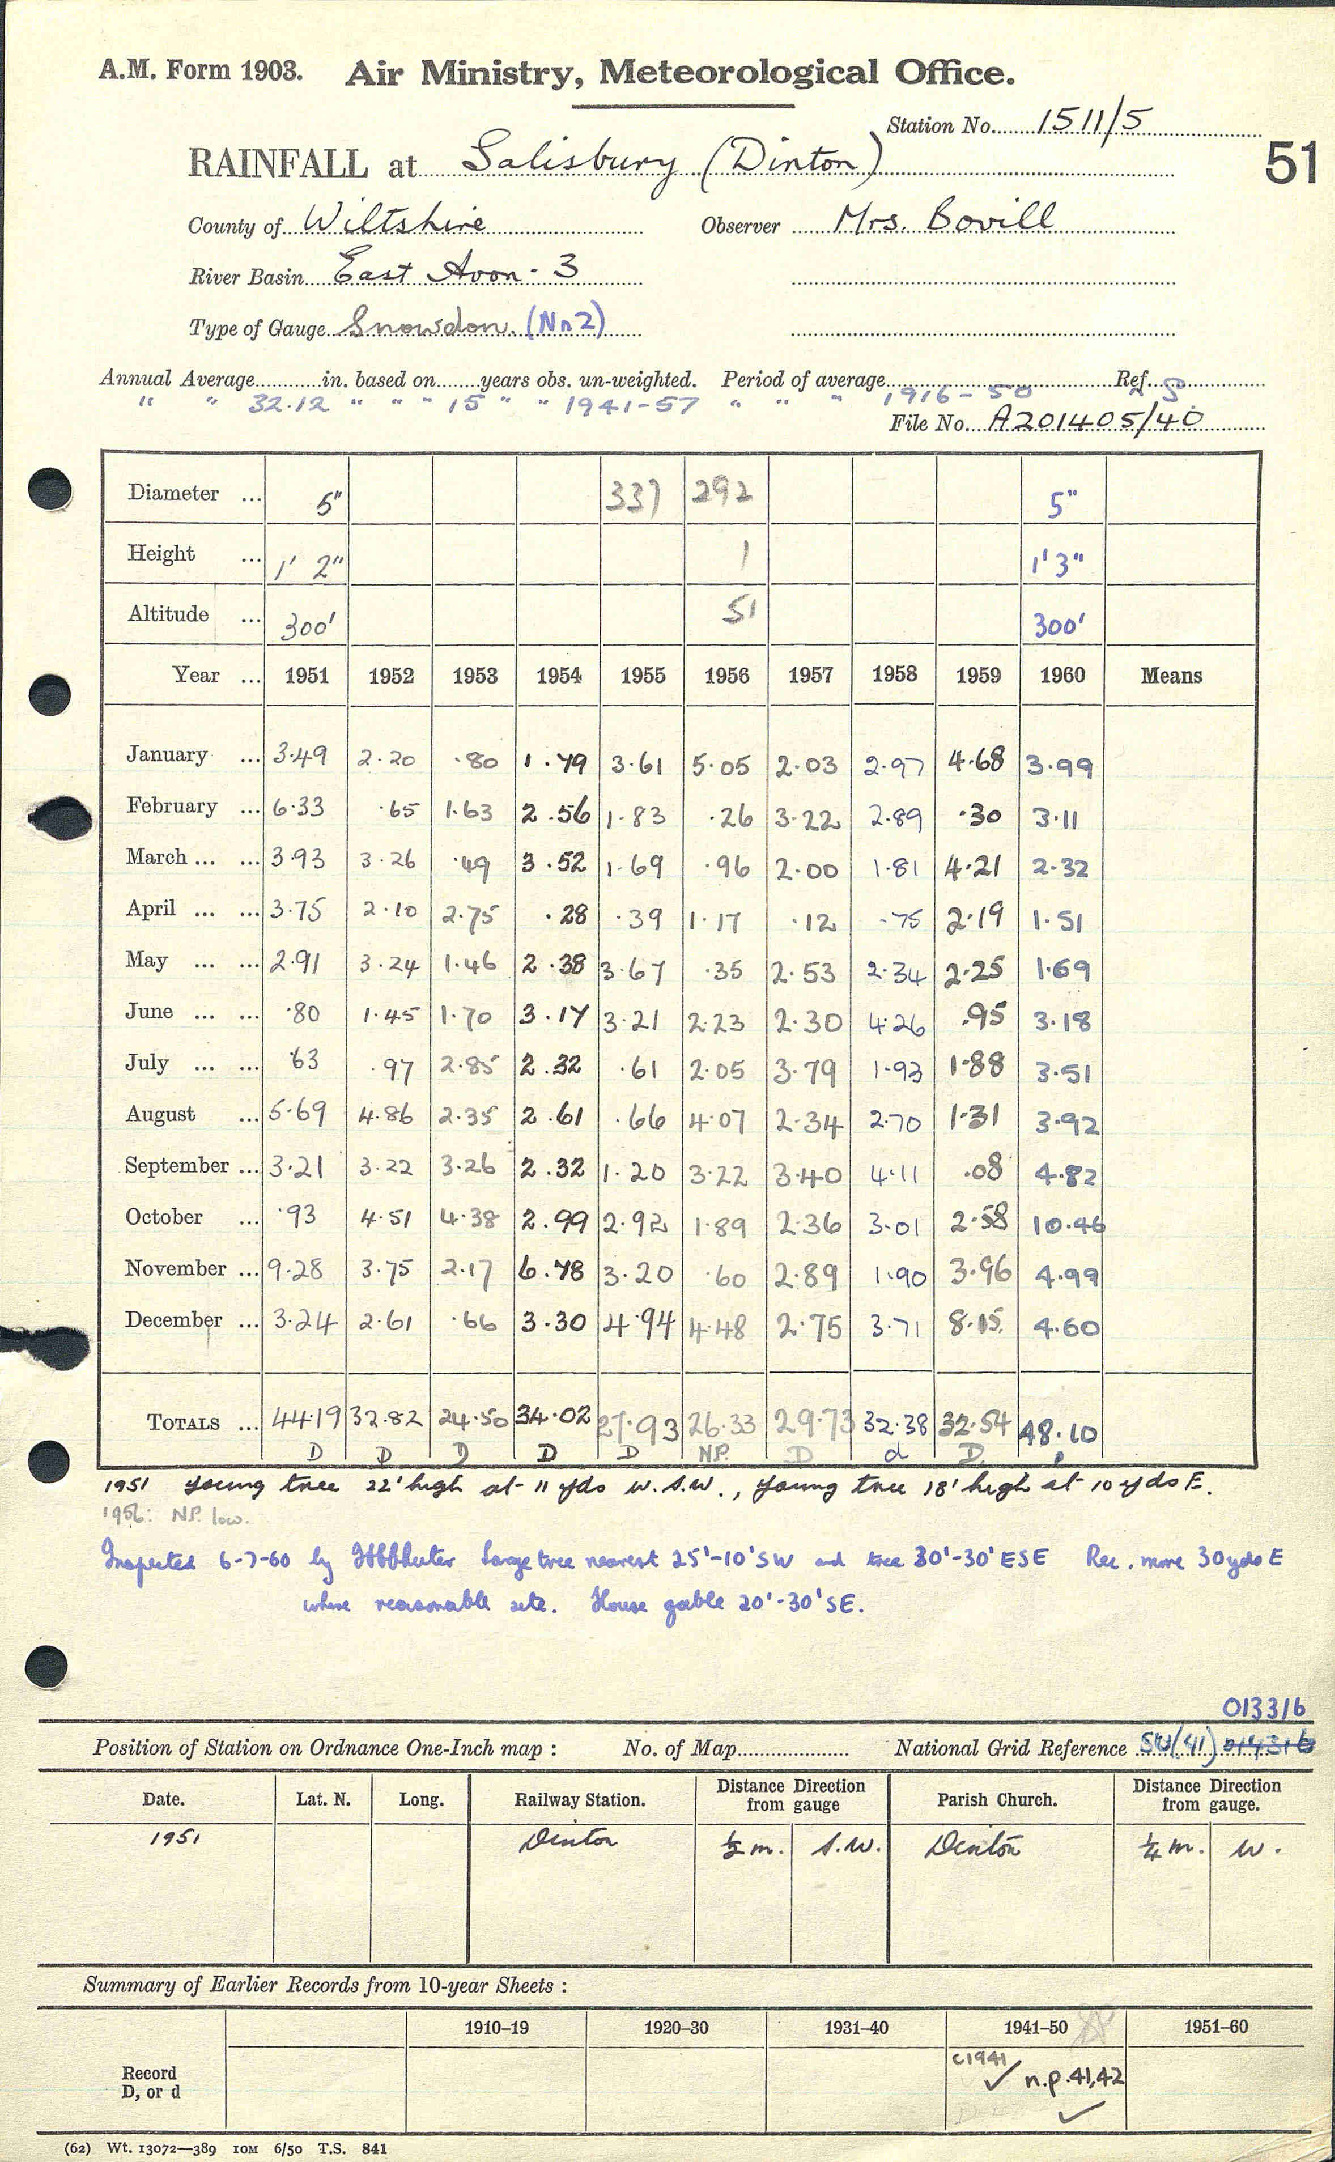 A.M. Form 1903. Air Ministry, Meteorological Office.
Station No. 1511/5
51
RAINFALL at Salisbury (Dinton)
County of Wiltshire Observer Mrs. Bovill
River Basin East Avon - 3
Type of Gauge Snowdon. (No 2)
Annual Average in. based on years obs. un-weighted. Period of average Ref.
" " 32.12 " " " 15 " " 1941-57 " " " 1916-50 S.
File No. A201405/40
Diameter ... 5" 337 292 5"
Height ... 1' 2" 1 1'3"
Altitude ... 300' 51 300'
Year ... 1951 1952 1953 1954 1955 1956 1957 1958 1959 1960 Means
January ... 3.49 2.20 .80 1.79 3.61 5.05 2.03 2.97 4.68 3.99
February ... 6.33 .65 1.63 2.56 1.83 .26 3.22 2.89 .30 3.11
March ... ... 3.93 3.26 .49 3.52 1.69 .96 2.00 1.81 4.21 2.32
April ... ... 3.75 2.10 2.75 .28 .39 1.17 .12 .75 2.19 1.51
May ... ... 2.91 3.24 1.46 2.38 3.67 .35 2.53 2.34 2.25 1.69
June ... ... .80 1.45 1.70 3.17 3.21 2.23 2.30 4.26 .95 3.18
July ... ... .63 .97 2.85 2.32 .61 2.05 3.79 1.93 1.88 3.51
August ... 5.69 4.86 2.35 2.61 .66 4.07 2.34 2.70 1.31 3.92
September ... 3.21 3.22 3.26 2.32 1.20 3.22 3.40 4.11 .08 4.82
October ... .93 4.51 4.38 2.99 2.92 1.89 2.36 3.01 2.58 10.46
November ... 9.28 3.75 2.17 6.78 3.20 .60 2.89 1.90 3.96 4.99
December ... 3.24 2.61 .66 3.30 4.94 4.48 2.75 3.71 8.15 4.60
TOTALS ... 44.19 32.82 24.50 34.02 27.93 26.33 29.73 32.38 32.54 48.10
D D D D D NP. D d D
1951 young tree 22' high at 11 yds W.S.W., young tree 18' high at 10 yds E.
1956: NP. low.
Inspected 6-7-60 by Large tree nearest 25'-10'SW and tree 30'-30'ESE Rec. move 30 yds E
where reasonable site. House gable 20'-30'SE.
013316
Position of Station on Ordnance One-Inch map : No. of Map National Grid Reference SU(41) 014316
Date. Lat. N. Long. Railway Station. Distance Direction from gauge Parish Church. Distance Direction from gauge.
1951 Dinton ½ m. S.W. Dinton ¼ m. W.
Summary of Earlier Records from 10-year Sheets :
1910–19 1920–30 1931–40 1941–50 1951–60
Record D, or d c1941 ✓ n.p. 41,42 ✓
(62) Wt. 13072—389 10M 6/50 T.S. 841